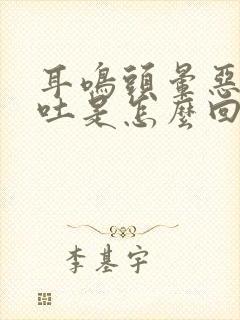 耳鳴頭暈惡
吐是怎麼回
李基宇